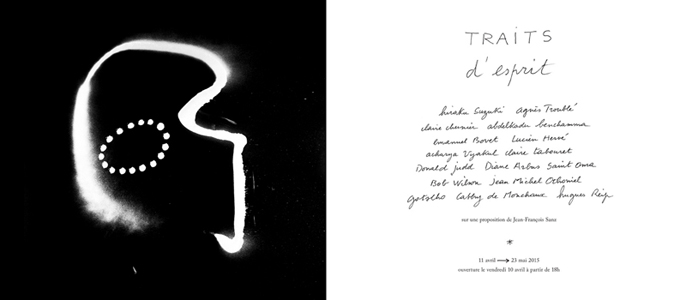 TRAITS
d'esprit
hiraku Suzuki agnès Troublé
claire chesnier abdelkader benchamma
Emmanuel Bovet Lucien Hervé
acharya Vyakul claire tabouret
Donald judd Diane Arbus Saint Oma
Bob Wilson Jean Michel Othoniel
gotscho Cathy de Monchaux hugues Reip
sur une proposition de Jean-François Sanz
*
11 avril ⟶ 23 mai 2015
ouverture le vendredi 10 avril à partir de 18h